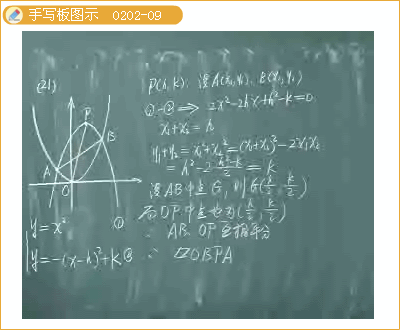 手写板图示 0202-09
(21)
P
B
A
O
①
y=x²
y=-(x-h)²+k②
P(h,k). 设A(x₁,y₁). B(x₂,y₂)
①-②⇒ 2x²-2hx+h²-k=0
x₁+x₂=h
y₁+y₂=x₁²+x₂²=(x₁+x₂)²-2x₁x₂
=h²-2·(h²-k)/2=k
设AB中点G,则G(h/2,k/2)
而OP中点也为(h/2,k/2)
∴ AB、OP互相平分
∴ ▱OBPA